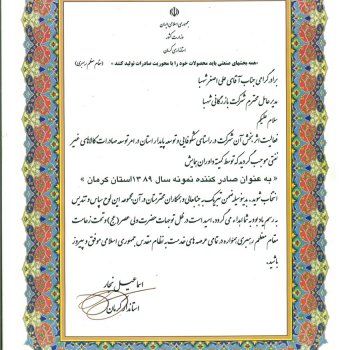 جمهوری اسلامی ایران
وزارت کشور
استانداری کرمان
«همه بخشهای صنعتی باید محصولات خود را با محوریت صادرات تولید کنند» (مقام معظم رهبری)
برادر گرامی جناب آقای علی اصغر شهبا
مدیر عامل محترم شرکت بازرگانی شهبا
سلام علیکم
فعالیت اثر بخش آن شرکت در راستای شکوفایی و توسعه پایدار استان در امر توسعه صادرات کالاهای غیر
نفتی موجب گردید که توسط کمیته داوران همایش
«به عنوان صادر کننده نمونه سال ۱۳۸۹ استان کرمان»
انتخاب شوید. بدینوسیله ضمن تبریک به جنابعالی و همکاران محترمتان در آن مجموعه این لوح سپاس و تندیس
به رسم یاد بود به شما اهداء می گردد. امید است در ظل توجهات حضرت ولی عصر (عج) و تحت زعامت
مقام معظم رهبری همواره در تمامی عرصه های خدمت به نظام مقدس جمهوری اسلامی موفق و پیروز
باشید.
اسماعیل نجار
استاندار کرمان